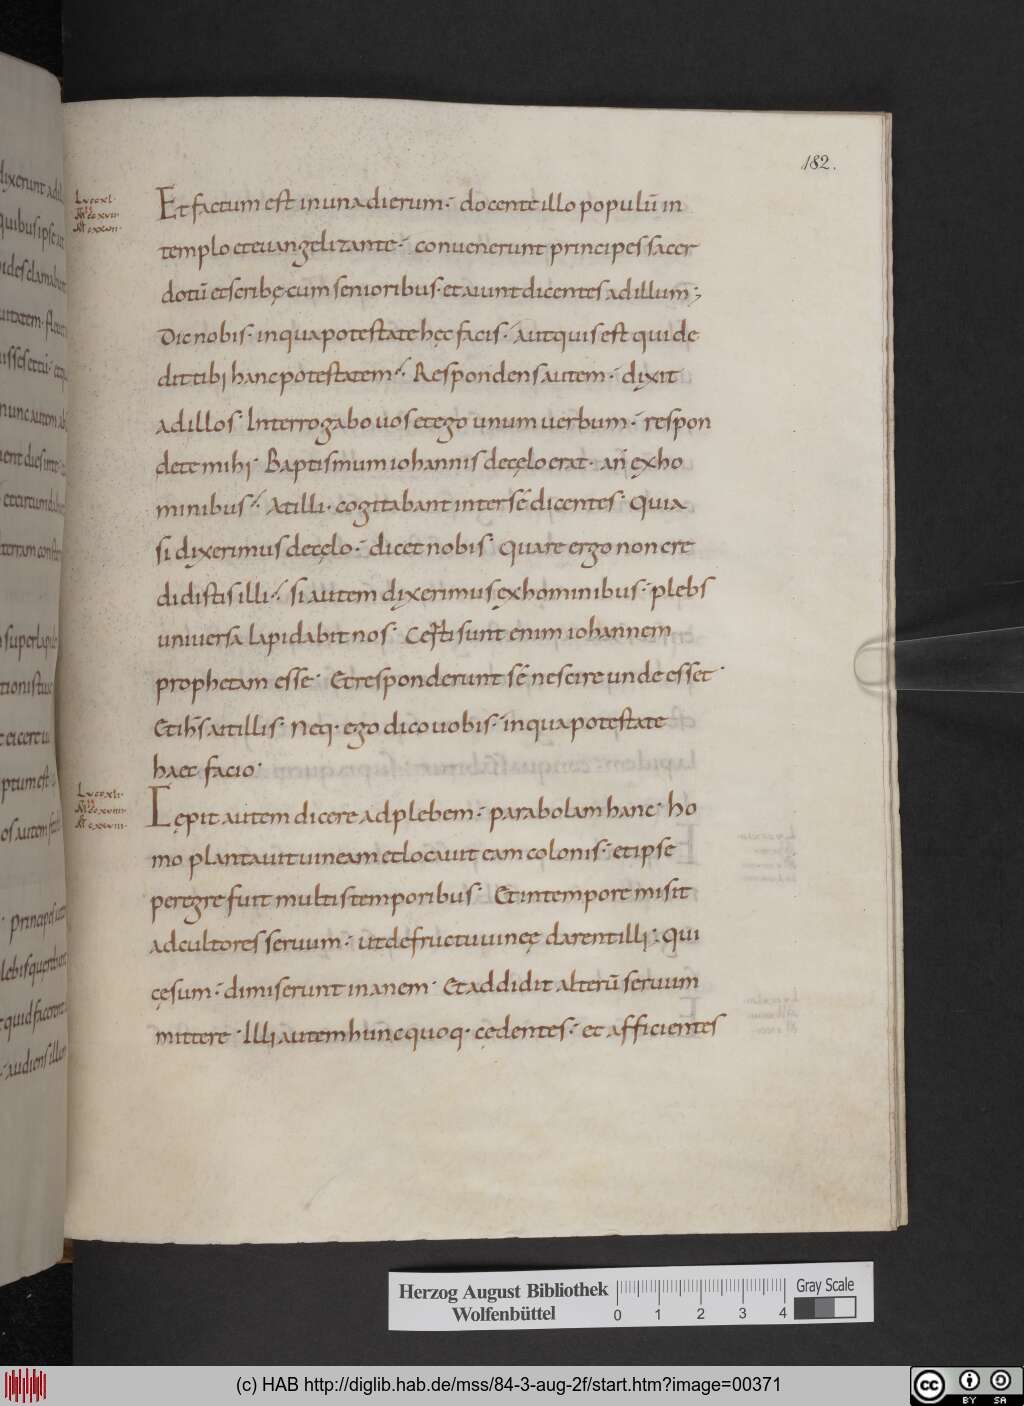 182.
Et factum est in una dierum · docente illo populū in
templo et euangelizante · conuenerunt principes sacer
dotū et scribę cum senioribus · et aiunt dicentes ad illum ;
Dic nobis · in qua potestate hęc facis · aut quis est qui de
dit tibi hanc potestatem · Respondens autem · dixit
ad illos · Interrogabo uos et ego unum uerbum · respon
dete mihi · Baptismum iohannis de cęlo erat · an̄ ex ho
minibus · At illi · cogitabant inter sé dicentes · Quia
si dixerimus de cęlo · dicet nobis · Quare ergo non cre
didistis illi · si autem dixerimus ex hominibus · plebs
uniuersa lapidabit nos · Certi sunt enim iohannem
prophetam esse · Et responderunt sé nescire unde esset ·
Et ih̄s ait illis · Neq· ego dico uobis · in qua potestate
haec facio ·
Cępit autem dicere ad plebem · parabolam hanc · ho
mo plantauit uineam et locauit eam colonis · et ipse
peregre fuit multis temporibus · Et in tempore misit
ad cultores seruum · ut de fructu uineę darent illi · Qui
cęsum · dimiserunt inanem · Et addidit alterū seruum
mittere · Illi autem hunc quoq· cędentes · et afficientes
Herzog August Bibliothek
Wolfenbüttel
0 1 2 3 4
Gray Scale
(c) HAB http://diglib.hab.de/mss/84-3-aug-2f/start.htm?image=00371
cc BY SA